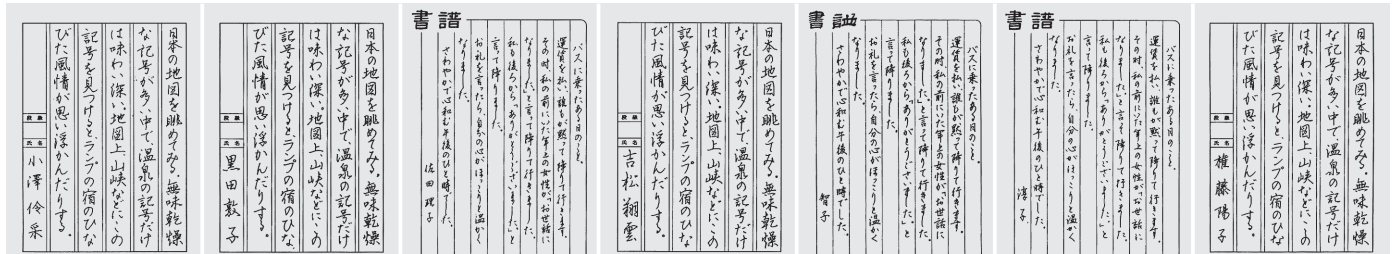 日本の地図を眺めてみる。無味乾燥
な記号が多い中で、温泉の記号だけ
は味わい深い。地図上、山峡などにこの
記号を見つけると、ランプの宿のひな
びた風情が思い浮かんだりする。
段級
氏名
小澤伶采
日本の地図を眺めてみる。無味乾燥
な記号が多い中で、温泉の記号だけ
は味わい深い。地図上、山峡などにこの
記号を見つけると、ランプの宿のひな
びた風情が思い浮かんだりする。
段級
氏名
黒田敦子
書譜
バスに乗ったある日のこと。
運賃を払い、誰もが黙って降りて行きます。
その時、私の前にいた年上の女性が「お世話に
なりました。」と言って降りて行きました。
私も後ろから「ありがとうございました。」と
言って降りました。
お礼を言ったら、自分の心がほっこりと温かく
なりました。
さわやかで心和む午後のひと時でした。
佐田理子
日本の地図を眺めてみる。無味乾燥
な記号が多い中で、温泉の記号だけ
は味わい深い。地図上、山峡などにこの
記号を見つけると、ランプの宿のひな
びた風情が思い浮かんだりする。
段級
氏名
吉松翔雲
書譜
バスに乗ったある日のこと。
運賃を払い、誰もが黙って降りて行きます。
その時、私の前にいた年上の女性が「お世話に
なりました。」と言って降りて行きました。
私も後ろから「ありがとうございました。」と
言って降りました。
お礼を言ったら、自分の心がほっこりと温かく
なりました。
さわやかで心和む午後のひと時でした。
智子
書譜
バスに乗ったある日のこと。
運賃を払い、誰もが黙って降りて行きます。
その時、私の前にいた年上の女性が「お世話に
なりました。」と言って降りて行きました。
私も後ろから「ありがとうございました。」と
言って降りました。
お礼を言ったら、自分の心がほっこりと温かく
なりました。
さわやかで心和む午後のひと時でした。
淳子
日本の地図を眺めてみる。無味乾燥
な記号が多い中で、温泉の記号だけ
は味わい深い。地図上、山峡などにこの
記号を見つけると、ランプの宿のひな
びた風情が思い浮かんだりする。
段級
氏名
権藤陽子